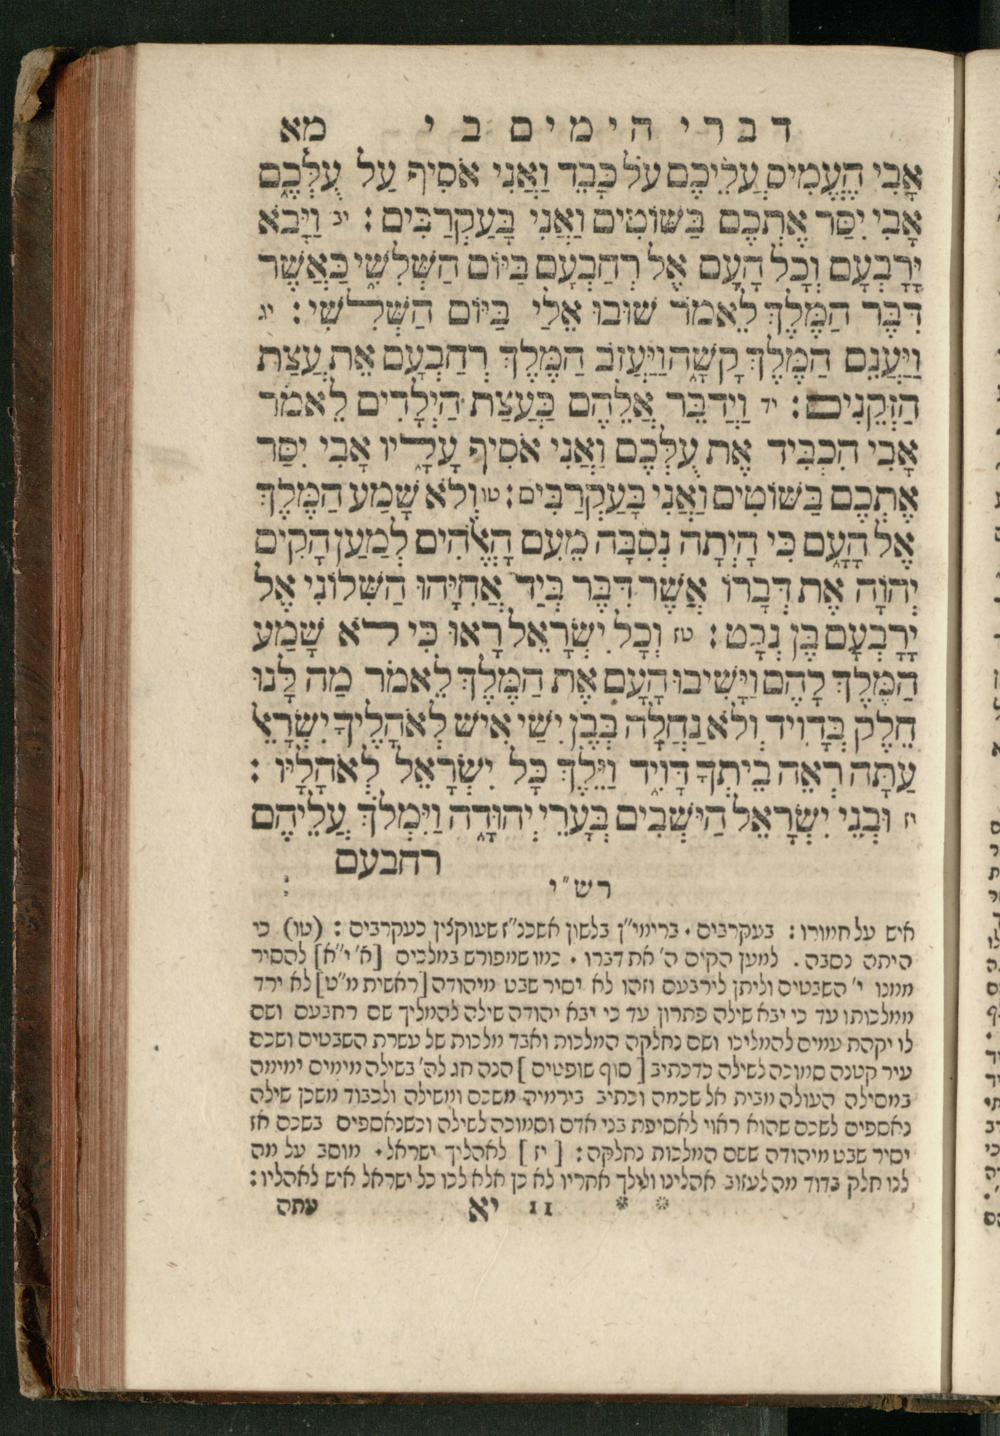 דברי הימים ב י מא
אָבִי הֶעֱמִיס עֲלֵיכֶם עֹל כָּבֵד וַאֲנִי אֹסִיף עַל עֻלְּכֶם
אָבִי יִסַּר אֶתְכֶם בַּשּׁוֹטִים וַאֲנִי בָּעַקְרַבִּים : יב וַיָּבֹא
יָרָבְעָם וְכָל הָעָם אֶל רְחַבְעָם בַּיּוֹם הַשְּׁלִשִׁי כַּאֲשֶׁר
דִּבֶּר הַמֶּלֶךְ לֵאמֹר שׁוּבוּ אֵלַי בַּיּוֹם הַשְּׁלִשִׁי : יג
וַיַּעֲנֵם הַמֶּלֶךְ קָשָׁה וַיַּעֲזוֹב הַמֶּלֶךְ רְחַבְעָם אֵת עֲצַת
הַזְּקֵנִים : יד וַיְדַבֵּר אֲלֵהֶם כַּעֲצַת הַיְלָדִים לֵאמֹר
אָבִי הִכְבִּיד אֶת עֻלְּכֶם וַאֲנִי אֹסִיף עָלָיו אָבִי יִסַּר
אֶתְכֶם בַּשּׁוֹטִים וַאֲנִי בָּעַקְרַבִּים : טו וְלֹא שָׁמַע הַמֶּלֶךְ
אֶל הָעָם כִּי הָיְתָה נְסִבָּה מֵעִם הָאֱלֹהִים לְמַעַן הָקִים
יְהוָֹה אֶת דְּבָרוֹ אֲשֶׁר דִּבֶּר בְּיַד אֲחִיָּהוּ הַשִּׁלוֹנִי אֶל
יָרָבְעָם בֶּן נְבָט : טז וְכָל יִשְׂרָאֵל רָאוּ כִּי לֹא שָׁמַע
הַמֶּלֶךְ לָהֶם וַיָּשִׁיבוּ הָעָם אֶת הַמֶּלֶךְ לֵאמֹר מַה לָּנוּ
חֵלֶק בְּדָוִיד וְלֹא נַחֲלָה בְּבֶן יִשַׁי אִישׁ לְאֹהָלֶיךָ יִשְׂרָאֵל
עַתָּה רְאֵה בֵיתְךָ דָּוִיד וַיֵּלֶךְ כָּל יִשְׂרָאֵל לְאֹהָלָיו :
יז וּבְנֵי יִשְׂרָאֵל הַיֹּשְׁבִים בְּעָרֵי יְהוּדָה וַיִּמְלֹךְ עֲלֵיהֶם
רחבעם
רש"י
איש על חמורו : בעקרבים . ברימי"ן בלשון אשכנ"ז שעוקצין כעקרבים : (טו) כי
היתה נסבה . למען הקים ה' את דברו . כמו שמפורש במלכים [א' י"א] להסיר
ממנו י' השבטים וליתן לירבעם וזהו לא יסיר שבט מיהודה [ראשית מ"ט] לא ירד
ממלכותו עד כי יבא שילה פתרון עד כי יבא יהודה שילה להמליך שם רחבעם ושם
לו יקהת עמים להמליכו ושם נחלקה המלכות ואבד מלכות של עשרת השבטים ושכם
עיר קטנה סמוכה לשילה כדכתיב [סוף שופטים] הנה חג לה' בשילה מימים ימימה
במסילה העולה מבית אל שכמה וכתיב בירמיה משכם ומשילה ולכבוד משכן שילה
נאספים לשכם שהוא ראוי לאסיפת בני אדם וסמוכה לשילה וכשנאספים בשכם אז
יסיר שבט מיהודה ששם המלכות נחלקה : [יז] לאהליך ישראל . מוסב על מה
לנו חלק בדוד מה לעזוב אהלינו ולילך אחריו לא כן אלא לכו כל ישראל איש לאהליו :
* * 11 יא עתה